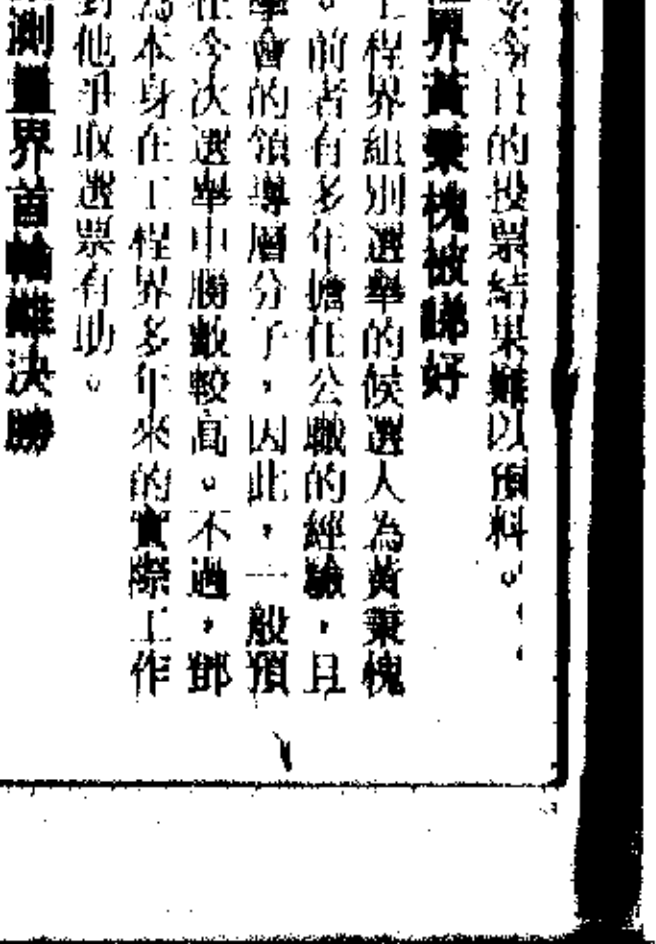 令今日的投票結果難以預料。
界黃秉槐被睇好
工程界組別選舉的候選人為黃秉槐
。前者有多年擔任公職的經驗，且
學會的領導層分子，因此，一般預
在今次選舉中勝數較高。不過，鄧
為本身在工程界多年來的實際工作
對他爭取選票有助。
測量界首輪難決勝